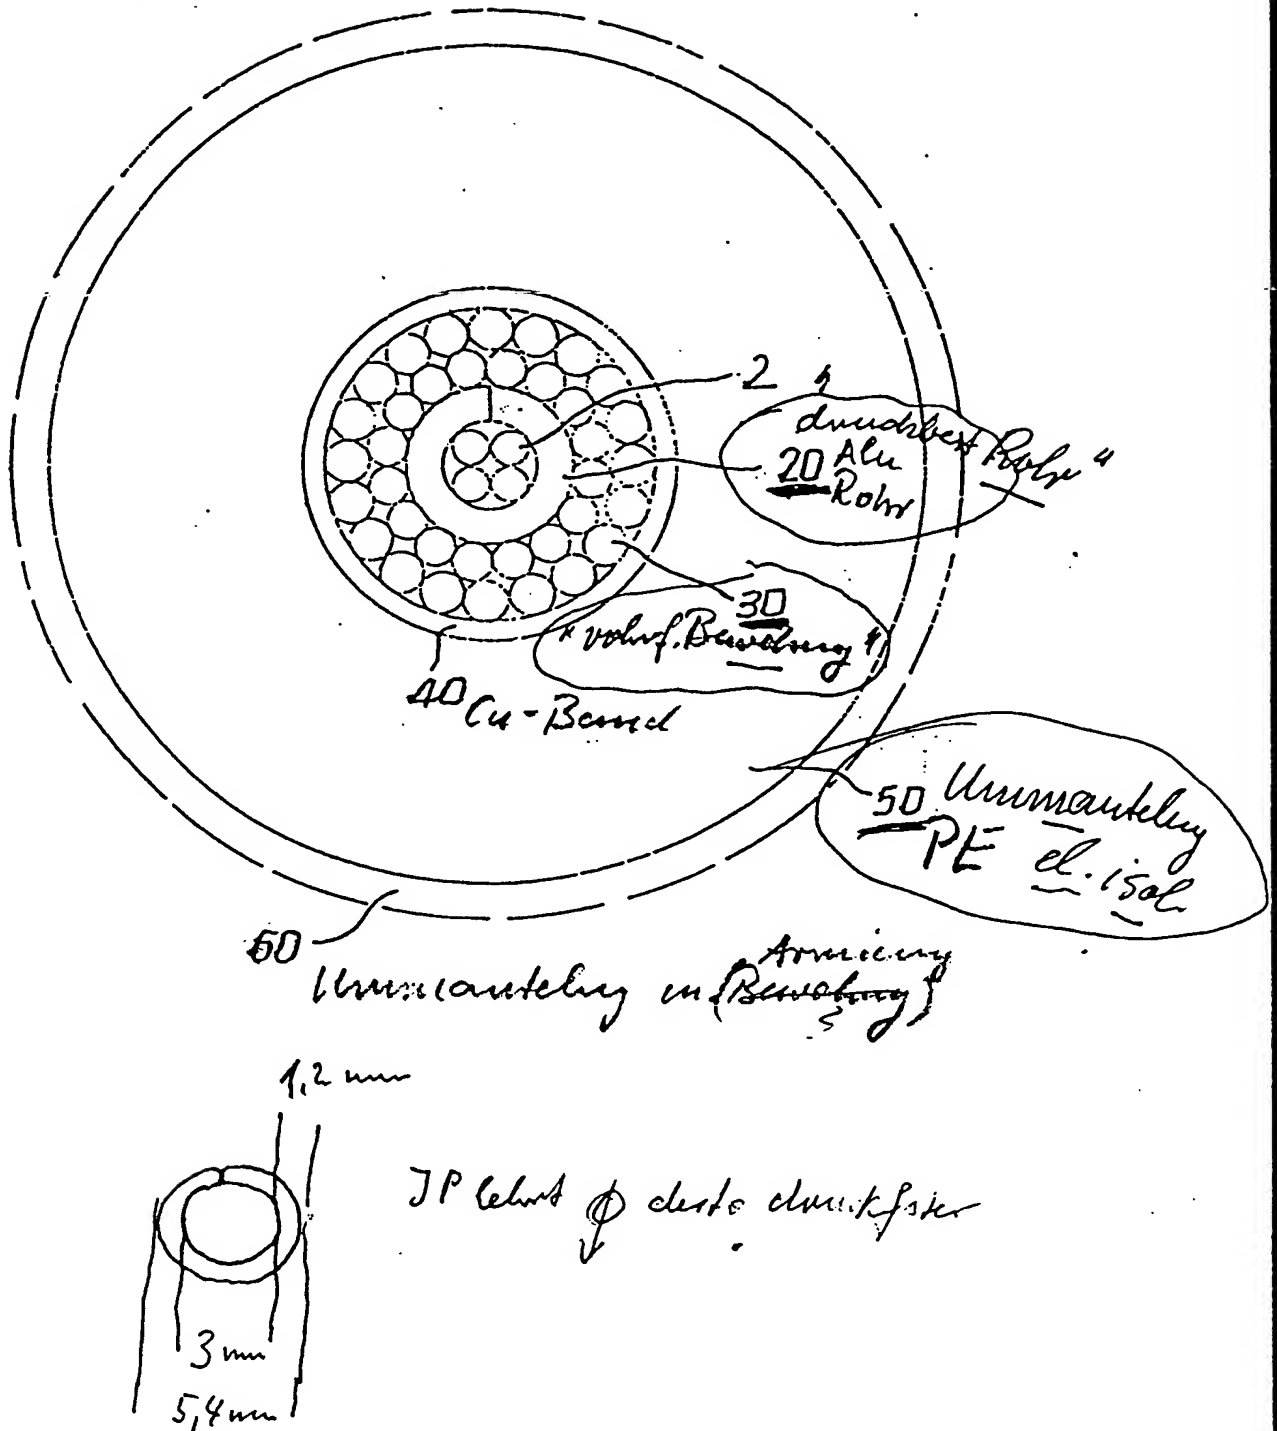 2
„druckfest Rohr“
20 Alu
Rohr
30
"rohrf. Bewehrung"
40 Cu-Band
50 Ummantelung
PE el. isol.
60
Ummantelung m {Bewehrung}
Armierung
1,2 mm
JP lehrt ϕ desto druckfester
3 mm
5,4 mm